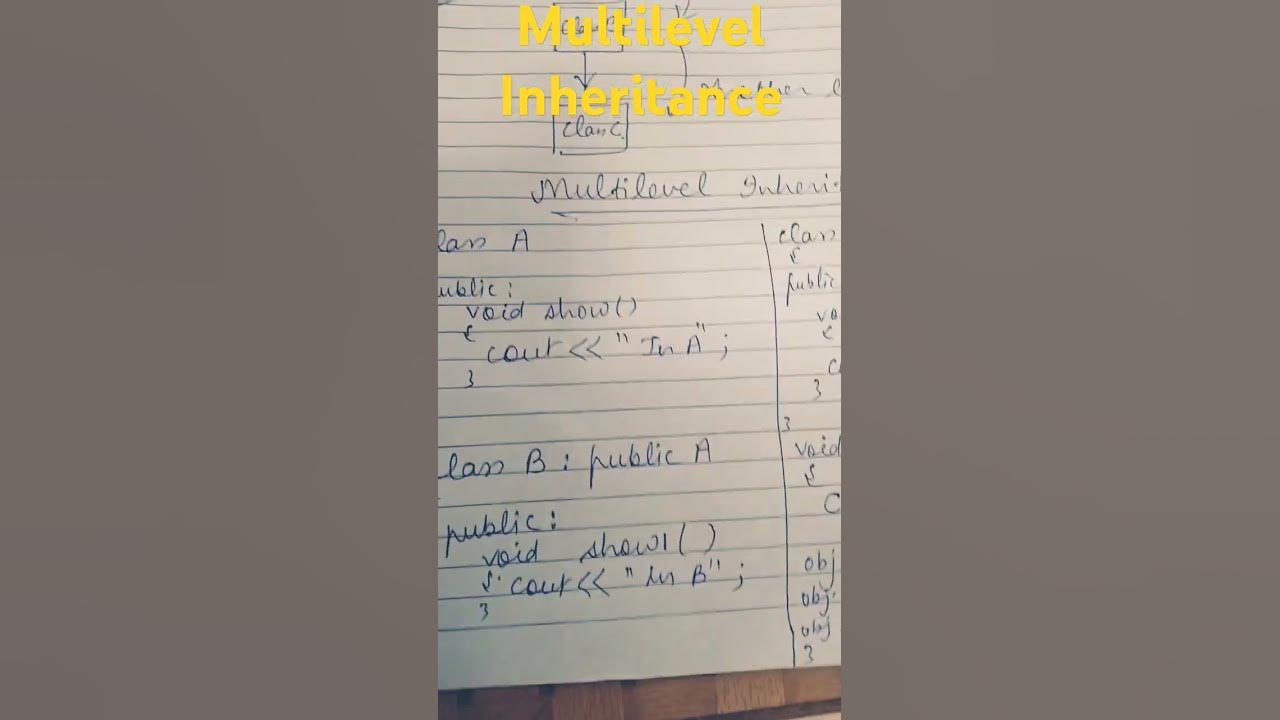 Multilevel
Inheritance
Class C
Multilevel Inheri
lass A
ublic:
void show()
{
cout << "In A";
}
lass B : public A
public:
void show1()
{ cout << "In B";
}
class
{
public
vo
{
C
}
}
void
{
C
obj
obj.
obj
}